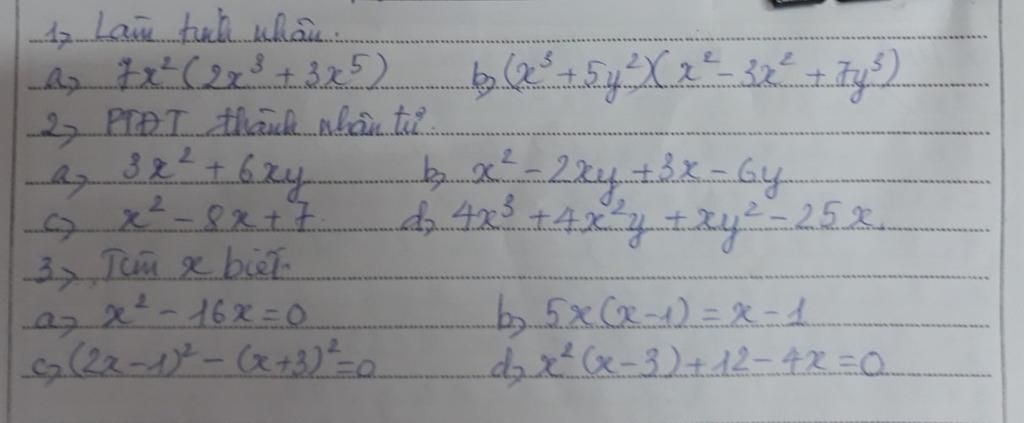 1, Làm tính nhân.
a, 7x²(2x³ + 3x⁵) b, (x³ + 5y²)(x² - 3x² + 7y³)
2, PTĐT thành nhân tử.
a, 3x² + 6xy b, x² - 2xy + 3x - 6y
c, x² - 8x + 7 d, 4x³ + 4x²y + xy² - 25x.
3, Tìm x biết.
a, x² - 16x = 0 b, 5x(x-1) = x - 1
c, (2x-1)² - (x+3)² = 0 d, x²(x-3) + 12 - 4x = 0